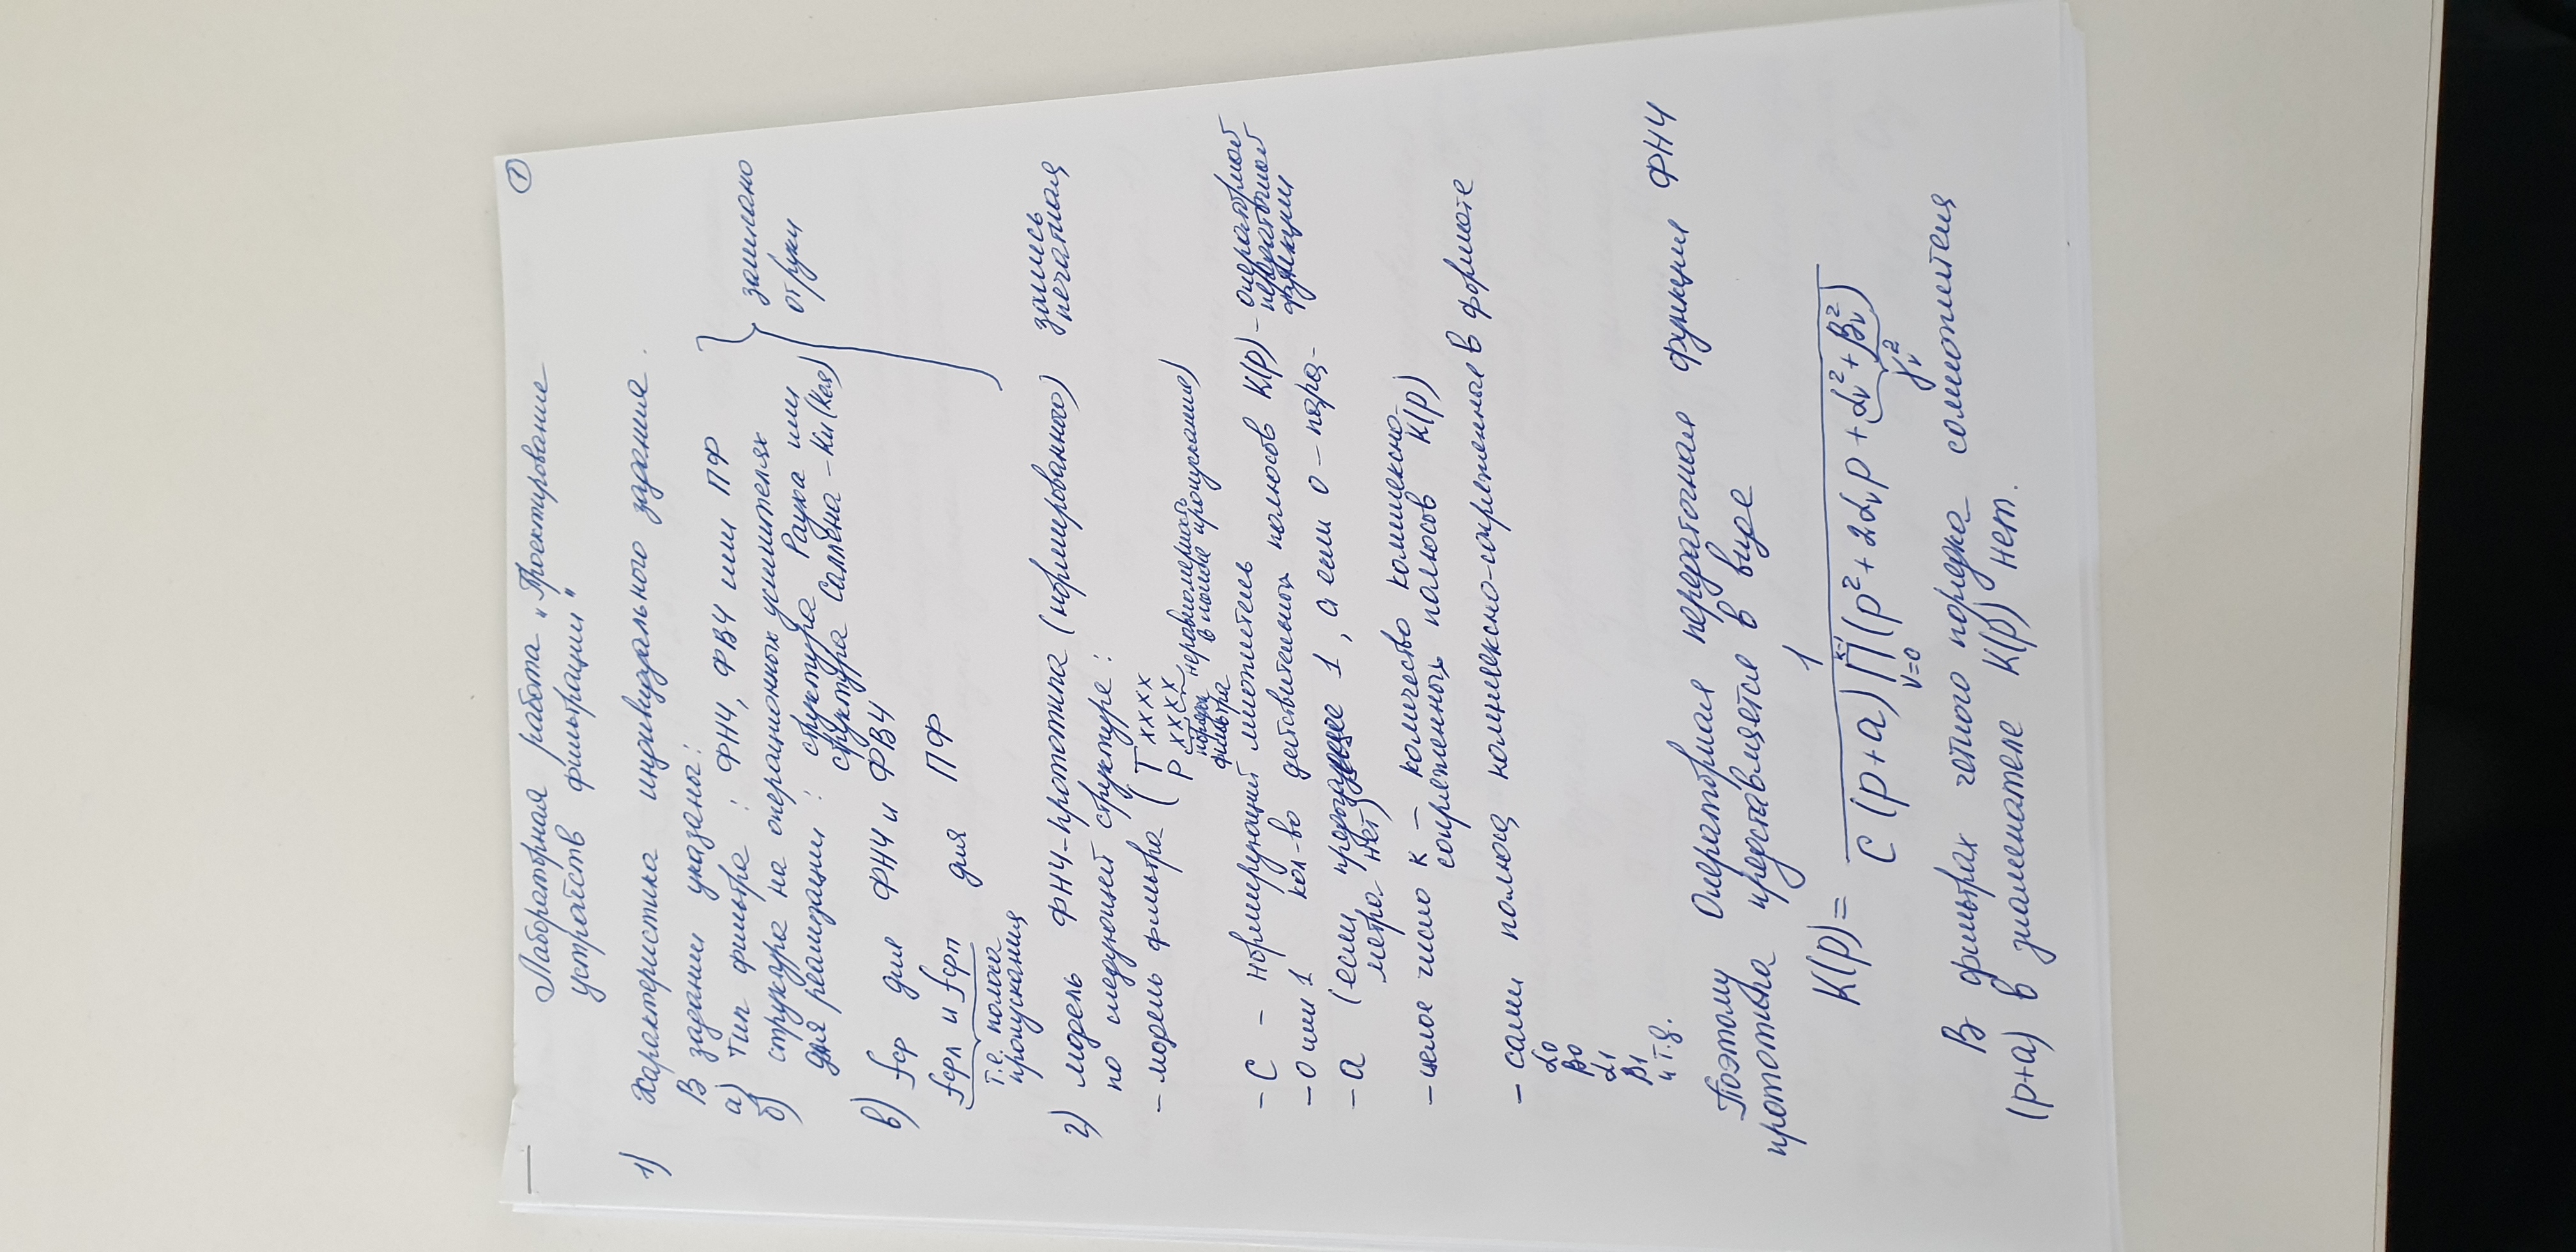 ①
Лабораторная работа „Проектирование
устройств фильтрации"
1) Характеристика индивидуального задания.
В задании указаны:
а) тип фильтра: ФНЧ, ФВЧ или ПФ
б) структура на операционных усилителях
для реализации: структура Рауха или
структура Саллена-Ки (Кея)
записано
от руки
в) fср для ФНЧ и ФВЧ
fсрл и fсрп для ПФ
т.е. полоса
пропускания
г) модель ФНЧ-прототипа (нормированного) запись
печатная
по следующей структуре:
- модель фильтра (T xxxx
P xxxx
порядок
фильтра
неравномерность
в полосе пропускания)
- C - нормирующий множитель
- 0 или 1 кол-во действительных полюсов K(p) - операторной
передаточной
функции
- a (если предыдущее 1, а если 0 - пара-
метра нет)
- целое число к - количество комплексно-
сопряженных полюсов K(p)
- сами полюса комплексно-сопряженные в формате
α0
β0
α1
β1
и т.д.
Поэтому Операторная передаточная функция ФНЧ
прототипа представляется в виде
K(p) = 1 / C (p+a) ∏ᵥ₌₀ᵏ⁻¹ (p² + 2αᵥp + αᵥ² + βᵥ²)
γᵥ²
В фильтрах четного порядка сомножителя
(p+a) в знаменателе K(p) нет.